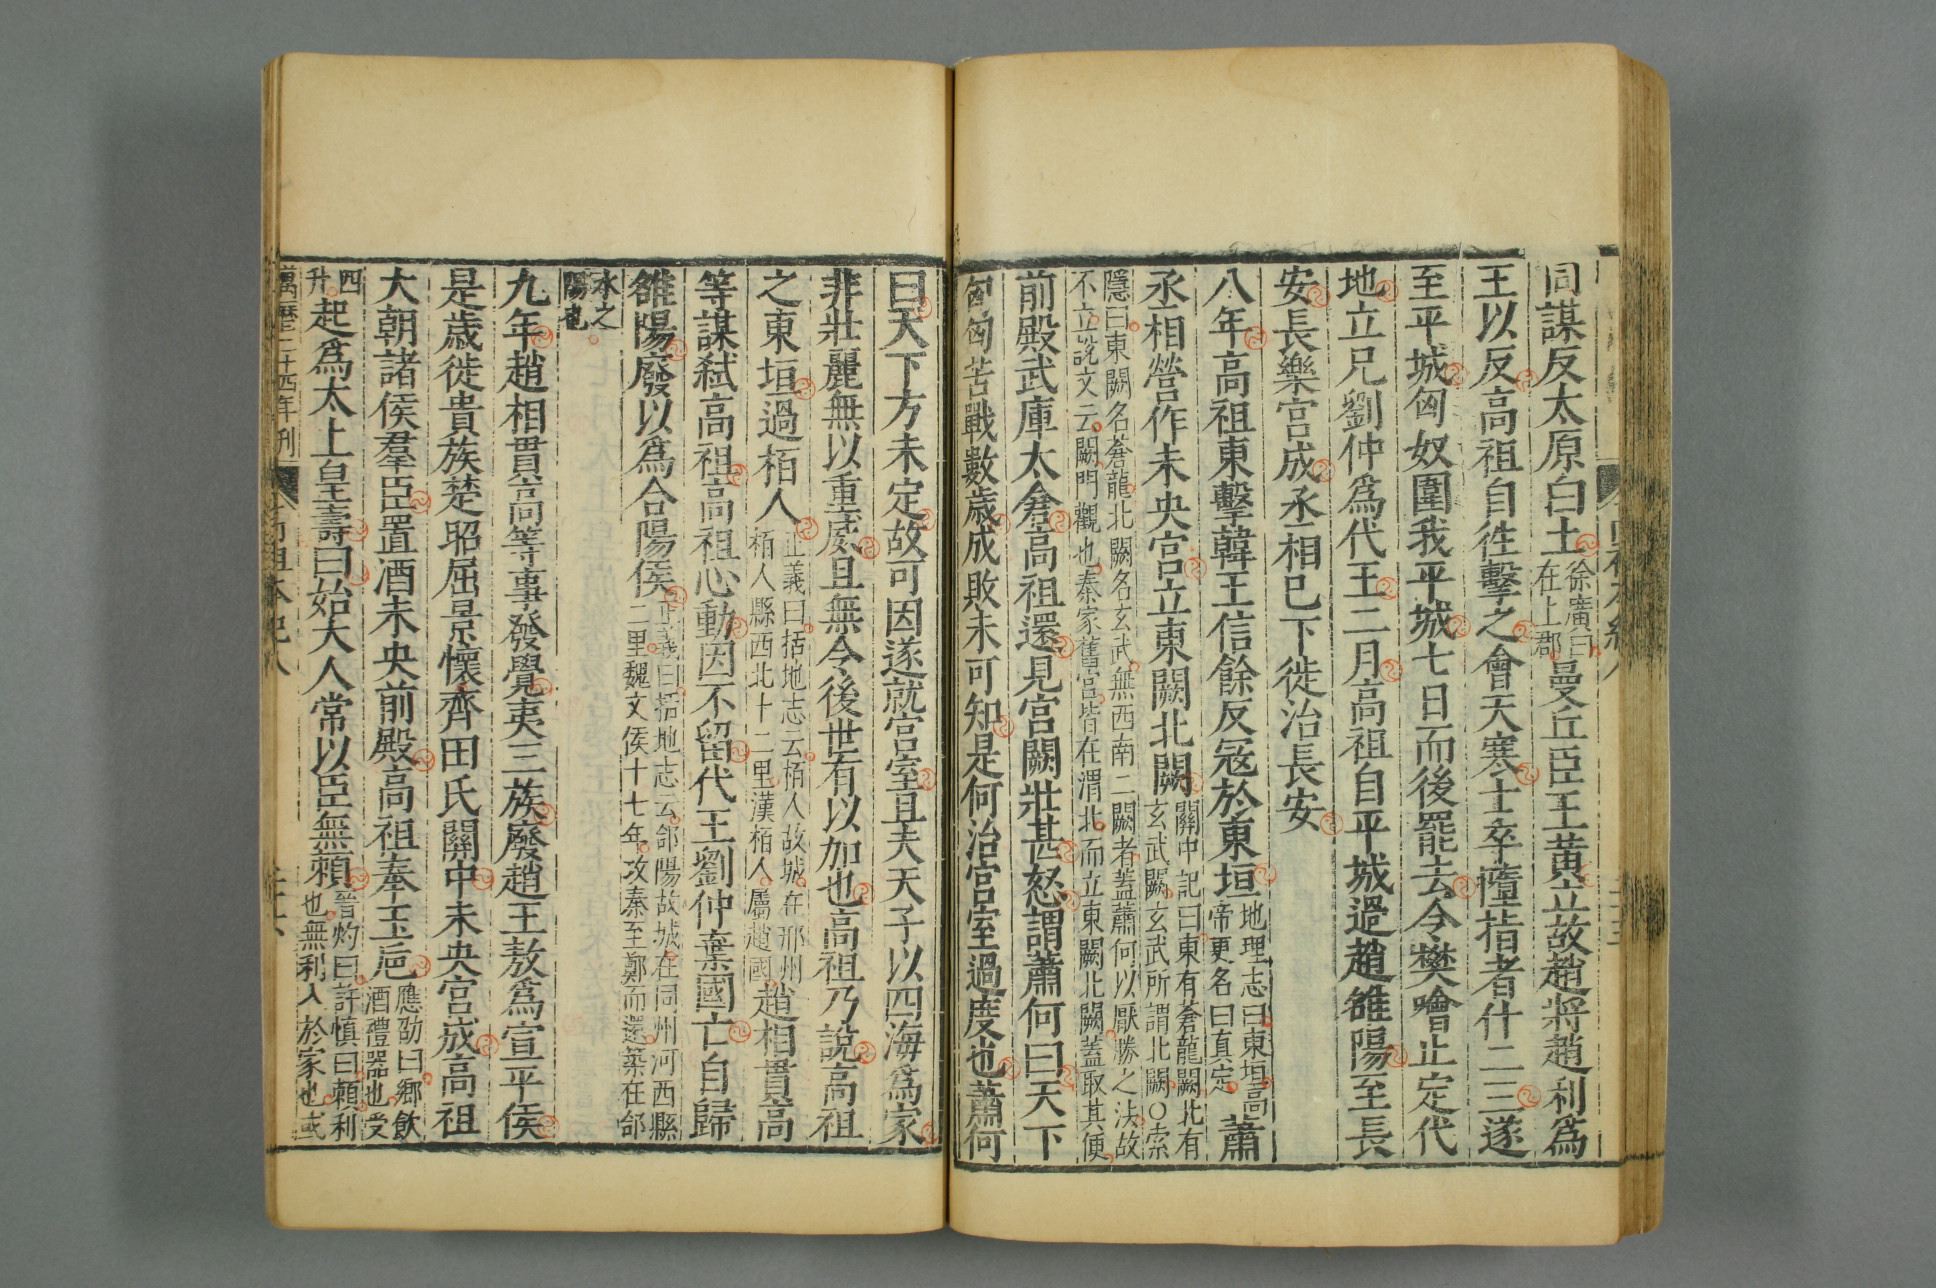 同謀反太原白土徐廣曰在上郡曼丘臣王黃立故趙將趙利爲
王以反高祖自往擊之會天寒士卒墮指者什二三遂
至平城匈奴圍我平城七日而後罷去令樊噲止定代
地立兄劉仲爲代王二月高祖自平城過趙雒陽至長
安長樂宮成丞相已下徙治長安
八年高祖東擊韓王信餘反寇於東垣地理志曰東垣高帝更名曰真定蕭
丞相營作未央宮立東闕北闕關中記曰東有蒼龍闕北有玄武闕玄武所謂北闕○索
隱曰東闕名蒼龍北闕名玄武無西南二闕者蓋蕭何以厭勝之法故
不立說文云闕門觀也秦家舊宮皆在渭北而立東闕北闕蓋取其便
前殿武庫太倉高祖還見宮闕壯甚怒謂蕭何曰天下
匈匈苦戰數歲成敗未可知是何治宮室過度也蕭何
曰天下方未定故可因遂就宮室且夫天子以四海爲家
非壯麗無以重威且無令後世有以加也高祖乃說高祖
之東垣過栢人正義曰括地志云栢人故城在邢州栢人縣西北十二里漢栢人屬趙國趙相貫高
等謀弒高祖高祖心動因不留代王劉仲棄國亡自歸
雒陽廢以爲合陽侯正義曰括地志云郃陽故城在同州河西縣二里魏文侯十七年攻秦至鄭而還築在郃
水之陽也
九年趙相貫高等事發覺夷三族廢趙王敖爲宣平侯
是歲徙貴族楚昭屈景懷齊田氏關中未央宮成高祖
大朝諸侯羣臣置酒未央前殿高祖奉玉巵應劭曰鄉飲酒禮器也受
四升起爲太上皇壽曰始大人常以臣無賴晉灼曰許慎曰賴利也無利入於家也或
萬曆二十四年刊
高祖本紀八
二十六